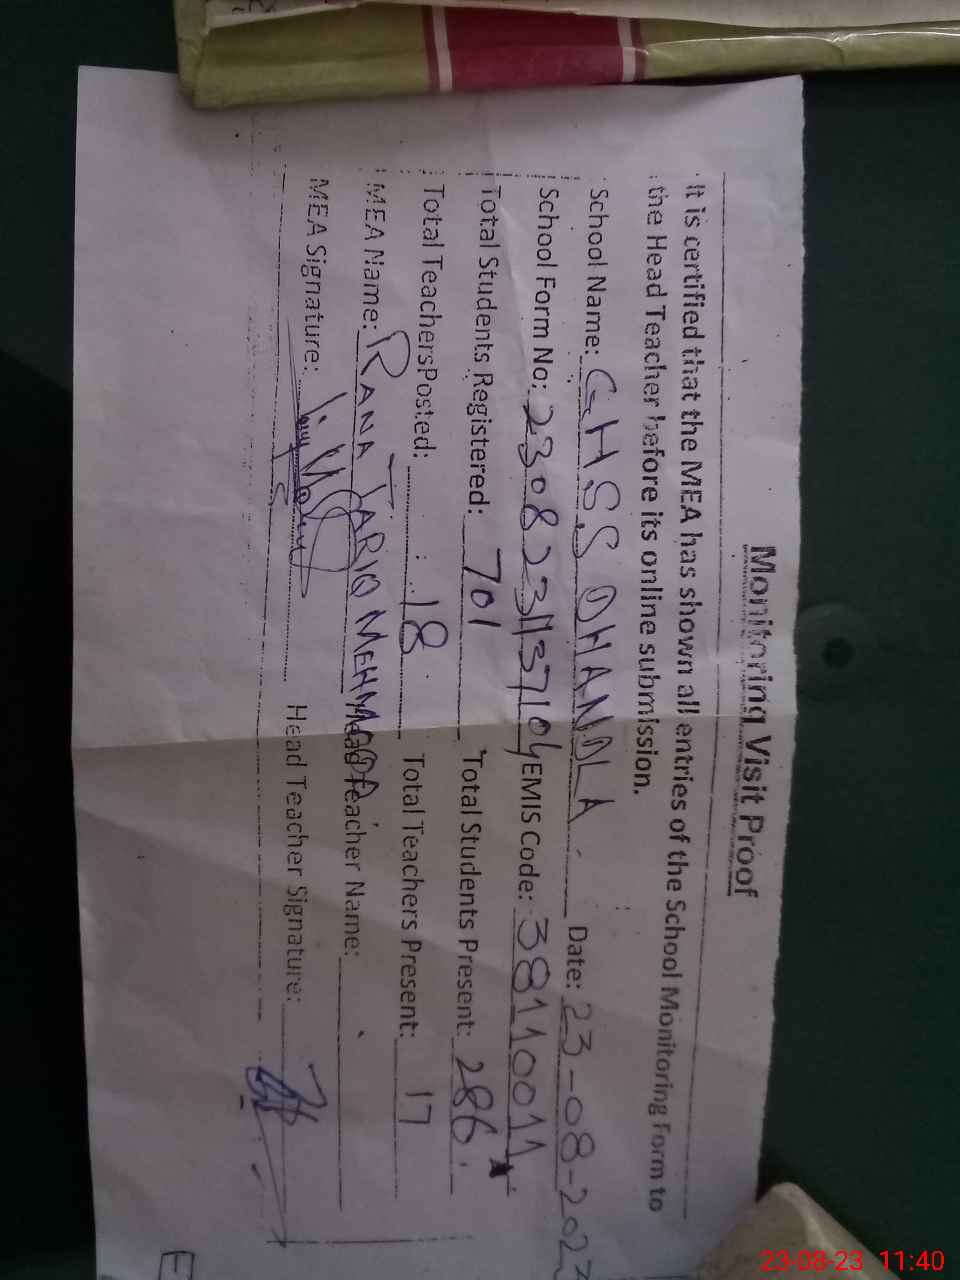 Monitoring Visit Proof
It is certified that the MEA has shown all entries of the School Monitoring Form to
the Head Teacher before its online submission.
School Name: GHSS DHANDLA Date: 23-08-2023
School Form No: 2308231137104 EMIS Code: 38110011
Total Students Registered: 701 Total Students Present: 286
Total TeachersPosted: 18 Total Teachers Present: 17
MEA Name: RANA TARIQ MEHMOOD Head Teacher Name:
MEA Signature: Head Teacher Signature:
E
23-08-23 11:40